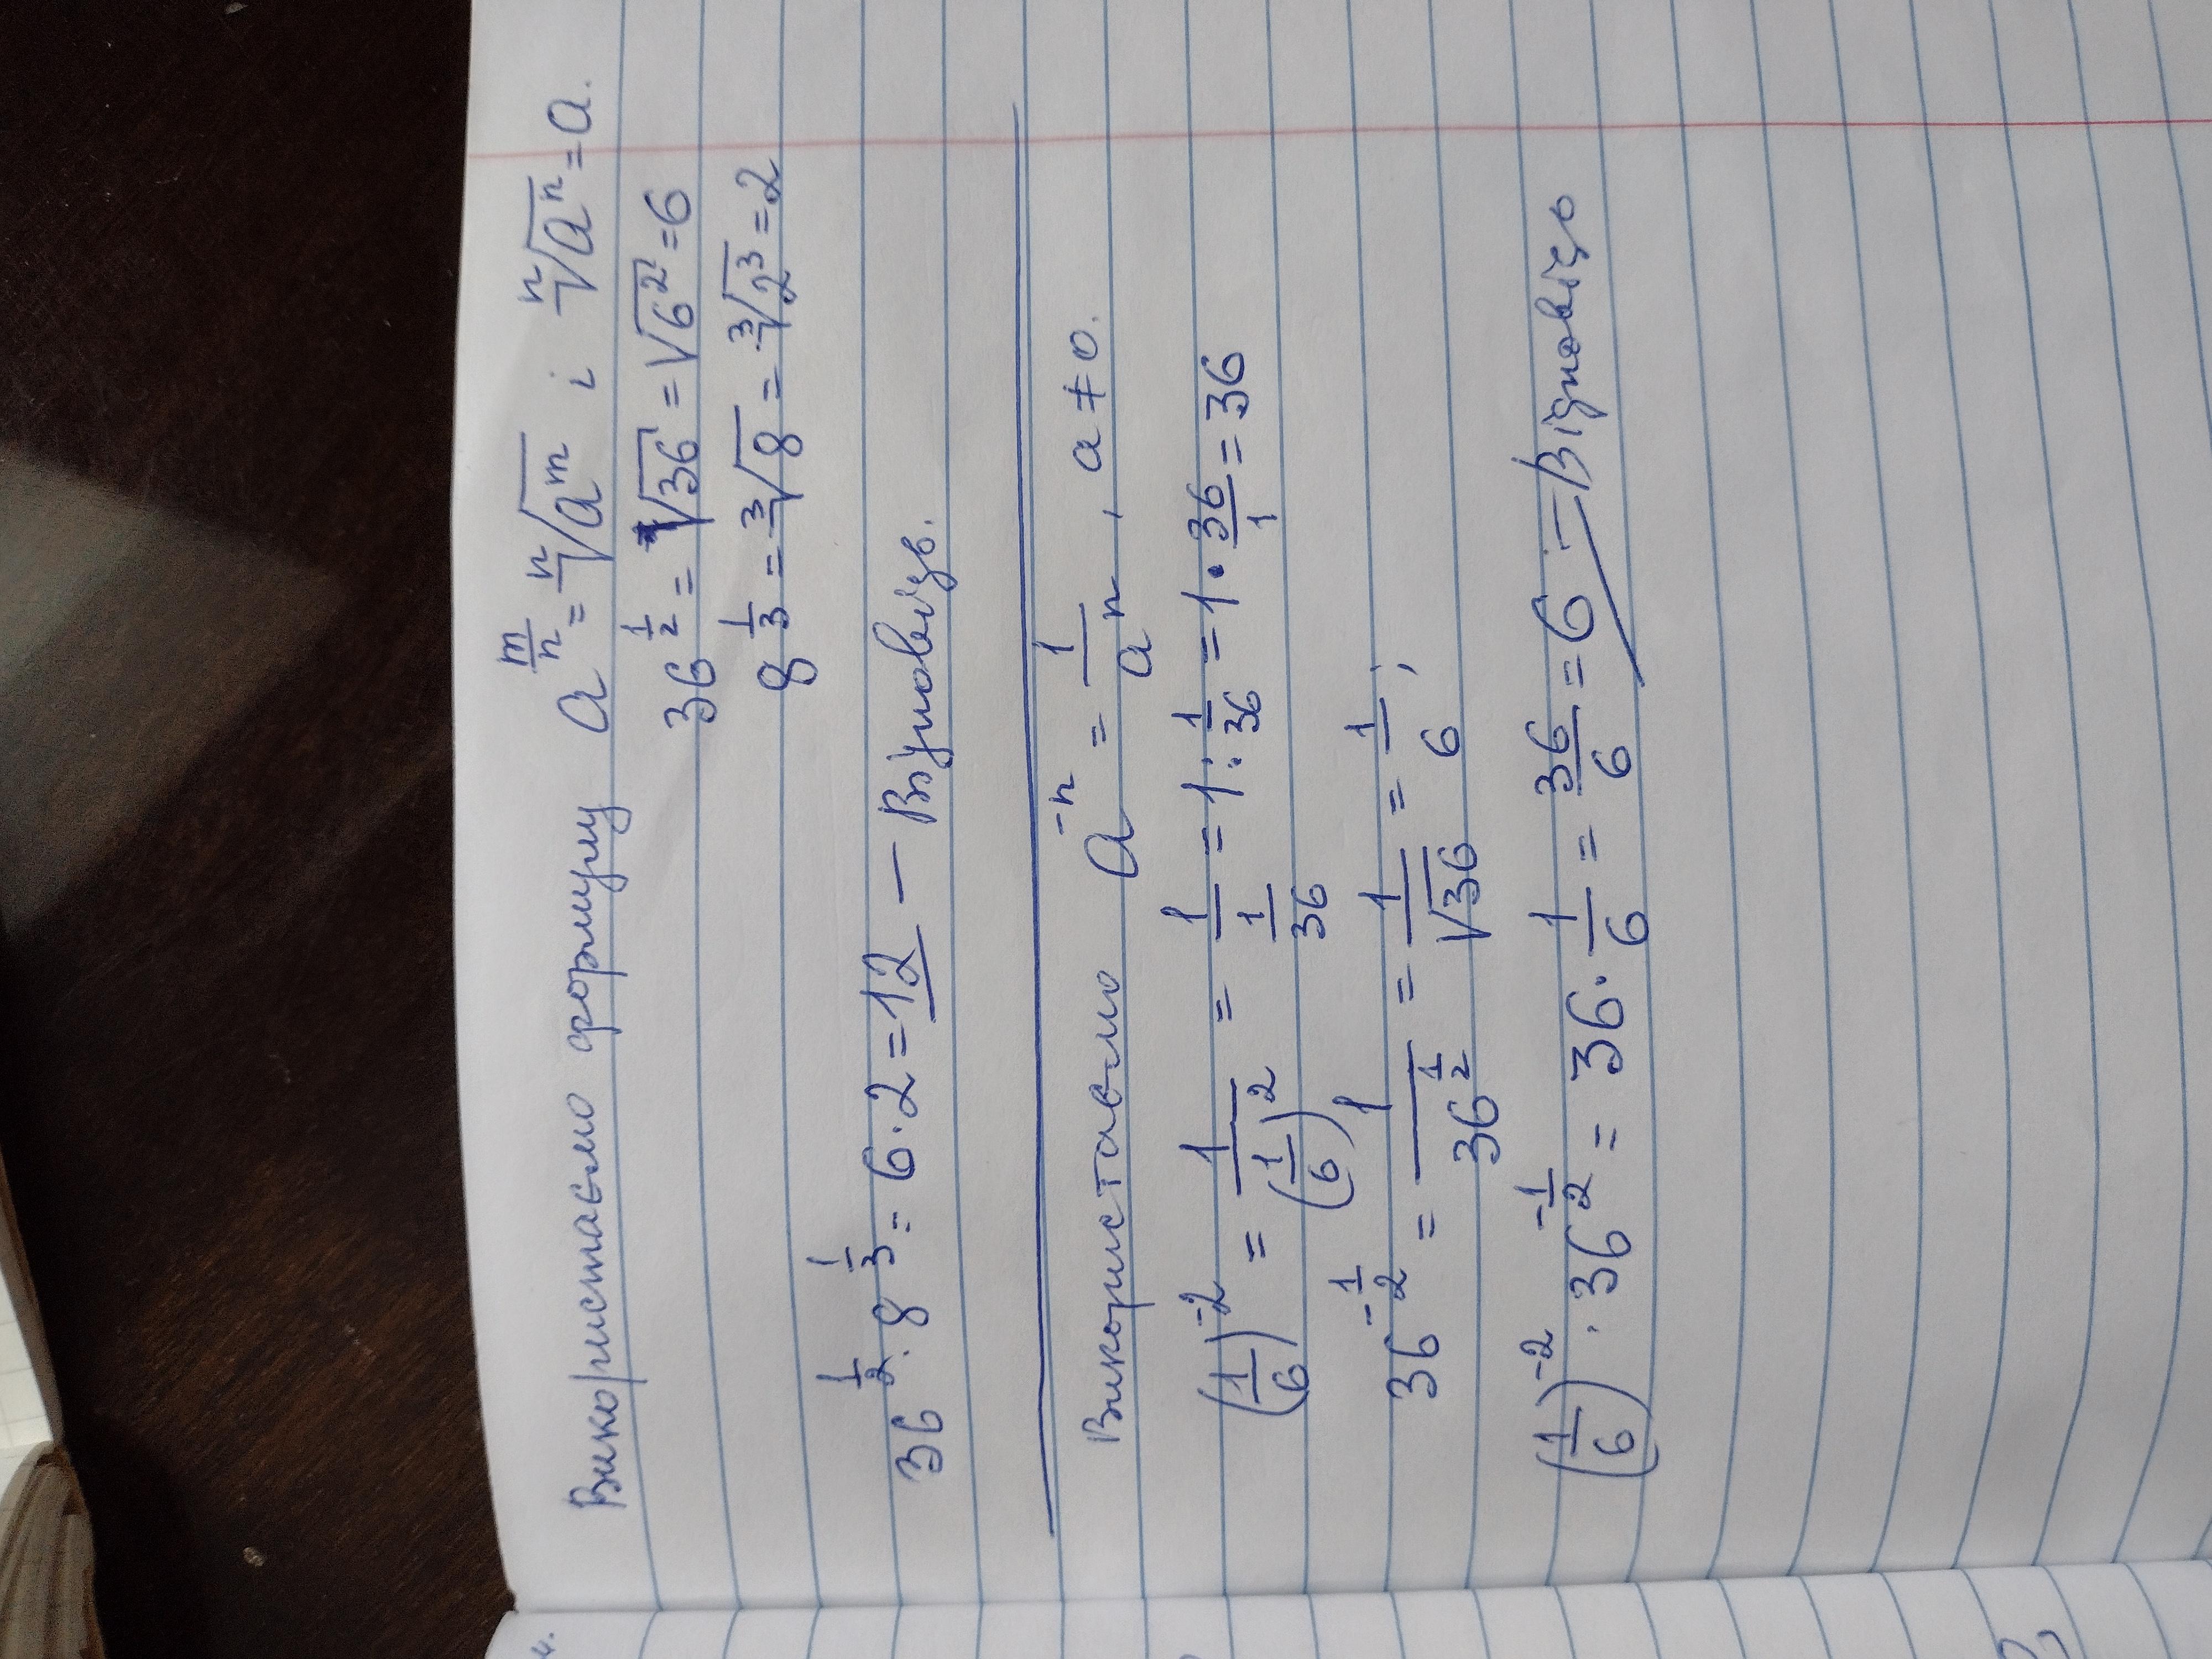 Використаємо формулу a^(m/n) = ⁿ√(a^m) і ⁿ√(aⁿ) = a.
36^(1/2) = √36 = √(6²) = 6
8^(1/3) = ³√8 = ³√(2³) = 2
36^(1/2) · 8^(1/3) = 6 · 2 = 12 – Відповідь.
Використаємо a^(-n) = 1/aⁿ, a ≠ 0.
(1/6)^(-2) = 1/(1/6)² = 1/(1/36) = 1 : 1/36 = 1 · 36/1 = 36
36^(-1/2) = 1/36^(1/2) = 1/√36 = 1/6 ;
(1/6)^(-2) · 36^(-1/2) = 36 · 1/6 = 36/6 = 6 – Відповідь